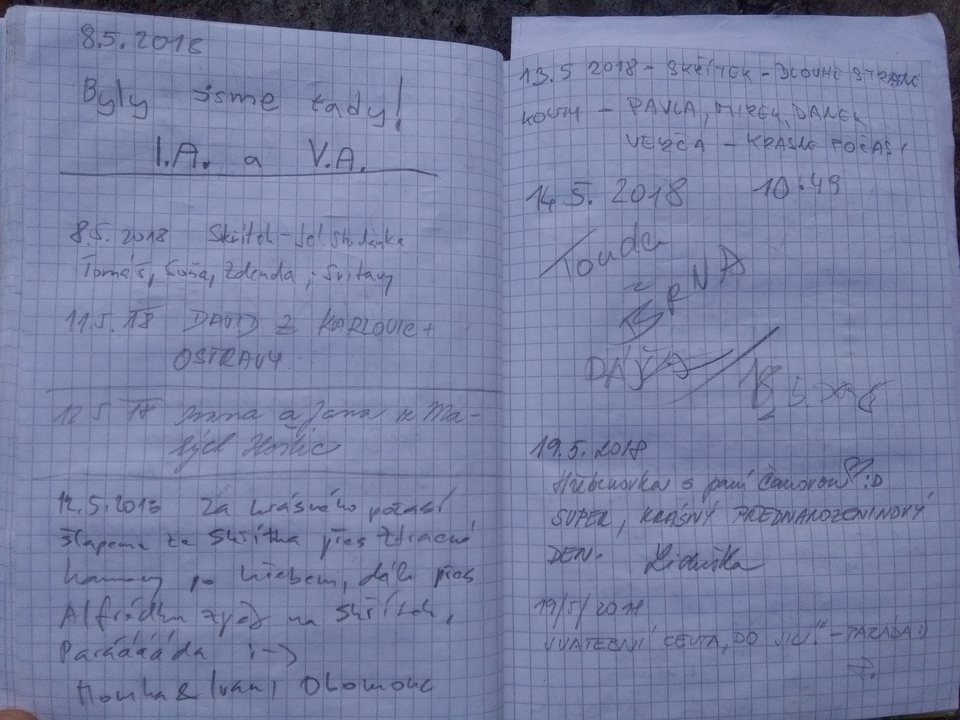 8.5.2018
Byly jsme tady!
I.A. a V.A.
8.5.2018 Skřítek -
Tomáš, Zdenda, Svitavy
11.5.18 DAVID Z KARLOVIC +
OSTRAVY
12.5.18 a Jana z Ma-
lých
12.5.2018 Za krásného počasí
šlapeme ze Skřítka přes Ztracené
kameny po hřebenu, dále přes
Alfrédku zpět na Skřítek,
Paráááda :-)
& Ivan, Olomouc
13.5 2018 - SKŘÍTEK - DLOUHÉ STRÁNĚ
KOUTY - PAVLA, MIREK, DANEK
VERČA - KRÁSNÉ POČASÍ
14.5. 2018 10:49
Tonda
z
BRNA
DÁŠA
19.5.2018
Hřebenovka s paní :D
SUPER, KRÁSNÝ PŘEDNAROZENINOVÝ
DEN.
19/5/2018
SVATEBNÍ CESTA, DO - PARÁDA :)